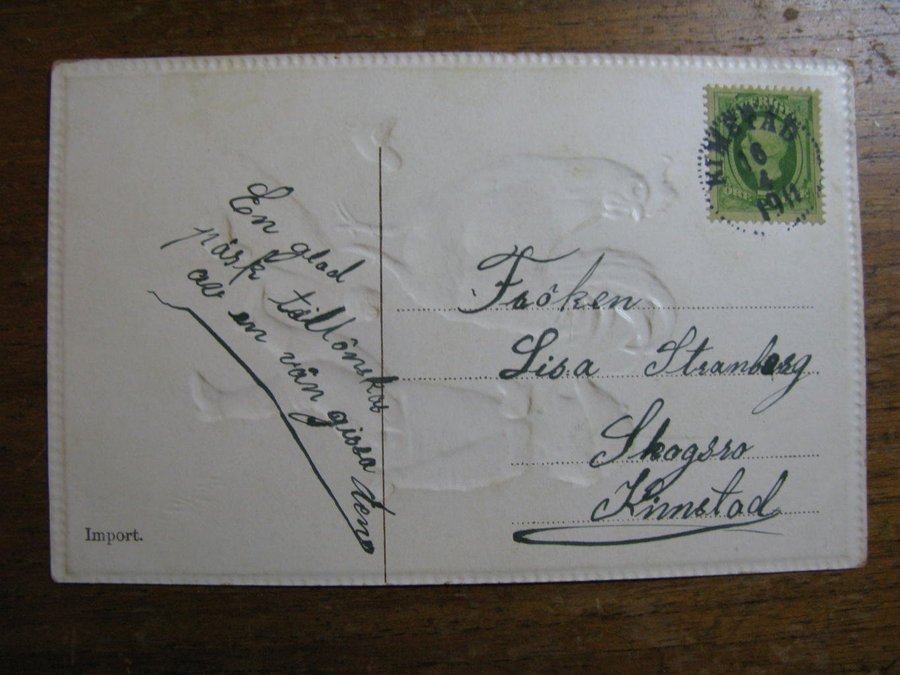 En glad
påsk tillönskas
av en vän gissa vem
Fröken
Lisa Stranberg
Skogsro
Kimstad
Import.
KIMSTAD
1911